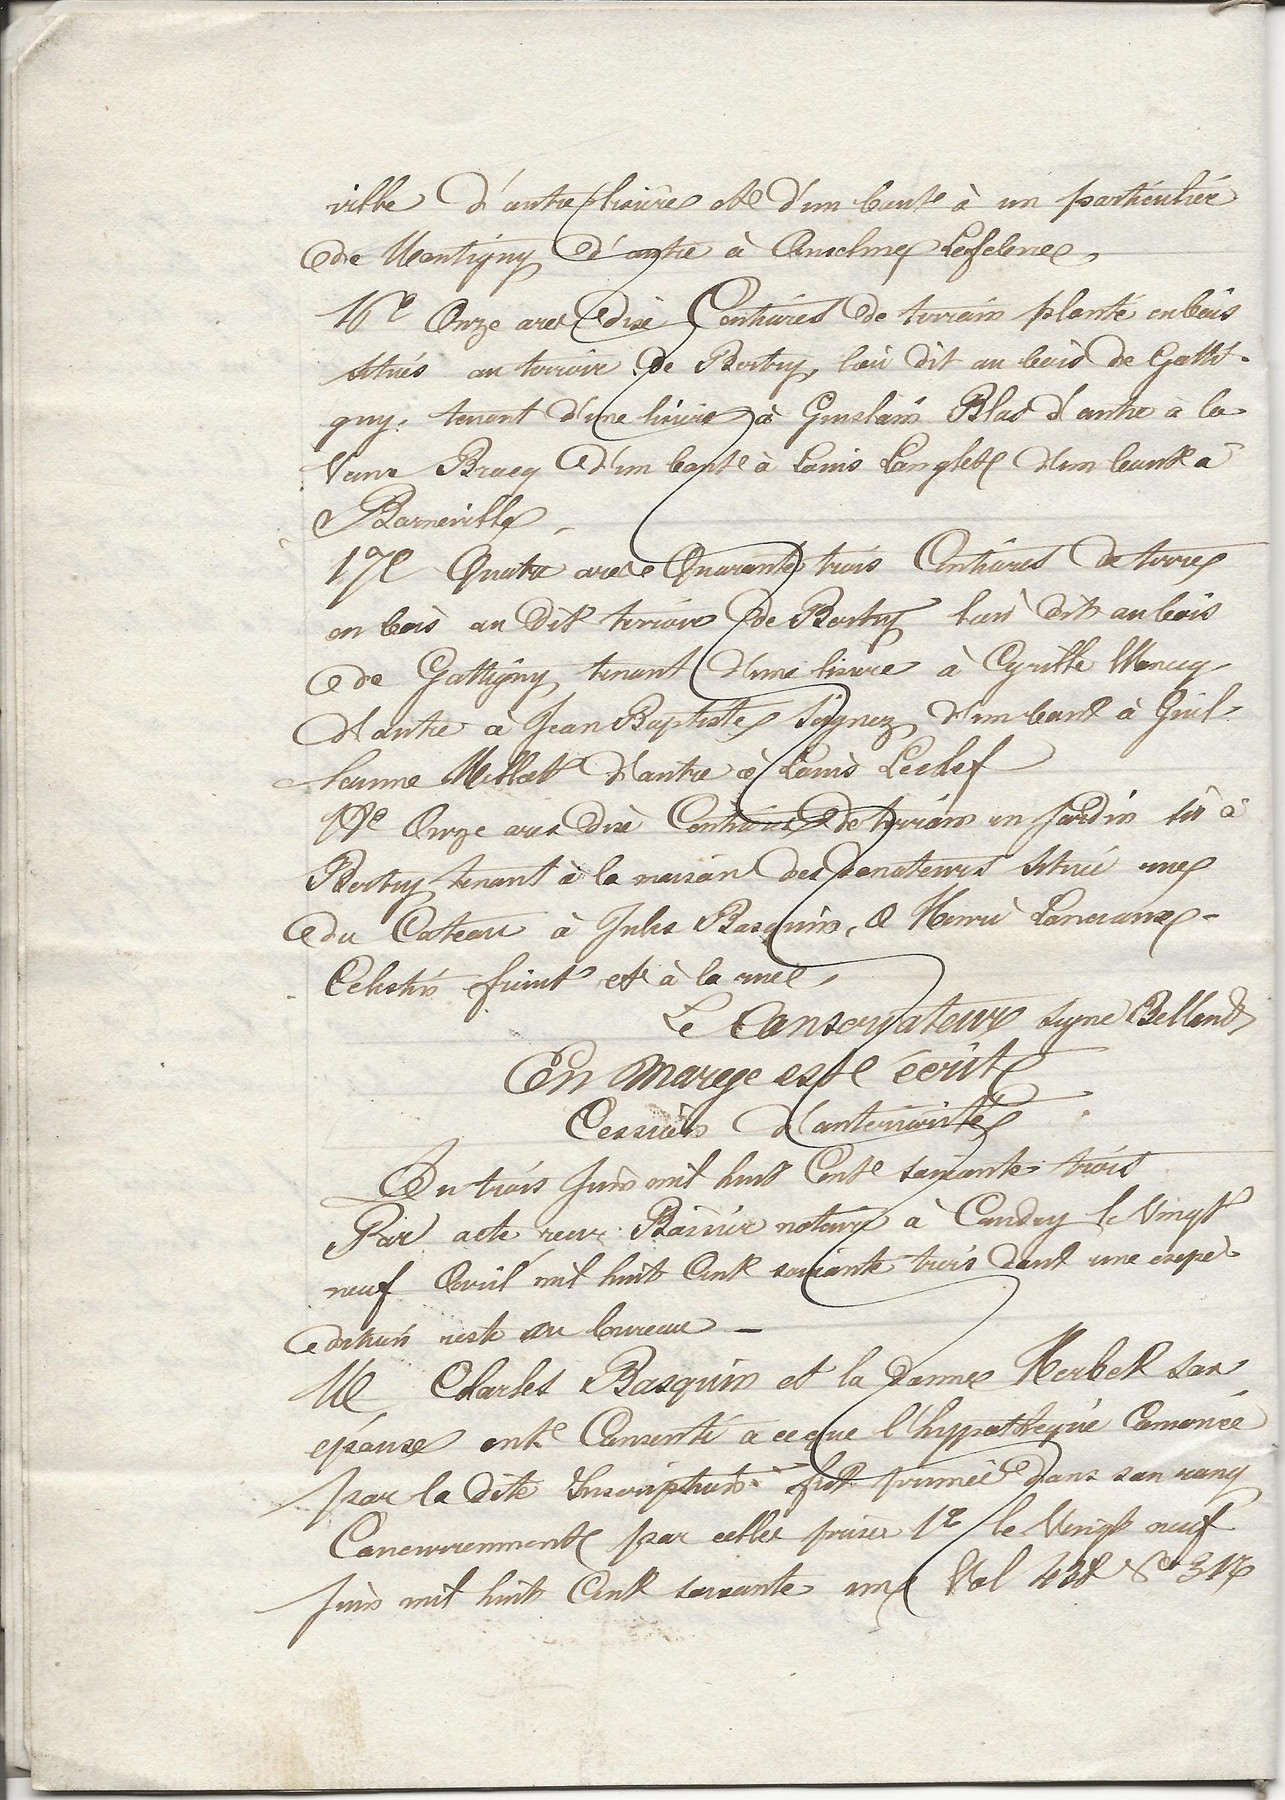 ville d'autre lisière et d'un bout à un particulier
de Montigny d'autre à Anselme Lefebvre,
16e Onze ares dix Centiares de terrain planté en bois
situés au terroir de Bertry, lieu dit au bois de Gatti-
gny, tenant d'une lisière à Guislain Blas d'autre à la
Veuve Bracq d'un bout à Louis Langlet d'un bout à
Barneville,
17e Quatre ares Quarante trois Centiares de terre
en bois au dit terroir de Bertry lieu dit au bois
de Gattigny tenant d'une lisière à Cyrille
d'autre à Jean Baptiste d'un bout à Guil-
leaume Millet d'autre à Louis Leclef
18e Onze ares dix Centiares de terrain en jardin sis à
Bertry tenant à la maison des donateurs située rue
du Cateau à Jules Basquin, à Henri
Célestin et à la rue,
Le Conservateur signé
En Marege est écrit
Cession d'anteriorité
Du trois Juin mil huit Cent soixante trois
Par acte recu notaire à Caudry le Vingt
neuf Avril mil huit Cent soixante trois dont une expé-
dition reste au bureau —
M Charles Basquin et la dame Herbet son
épouse ont Consenti à ce que l'hyppothèque
par la dite Inscription fut primée dans son rang
Concurremment par celles prises 1e le Vingt neuf
juin mil huit Cent soixante une Vol 428 No